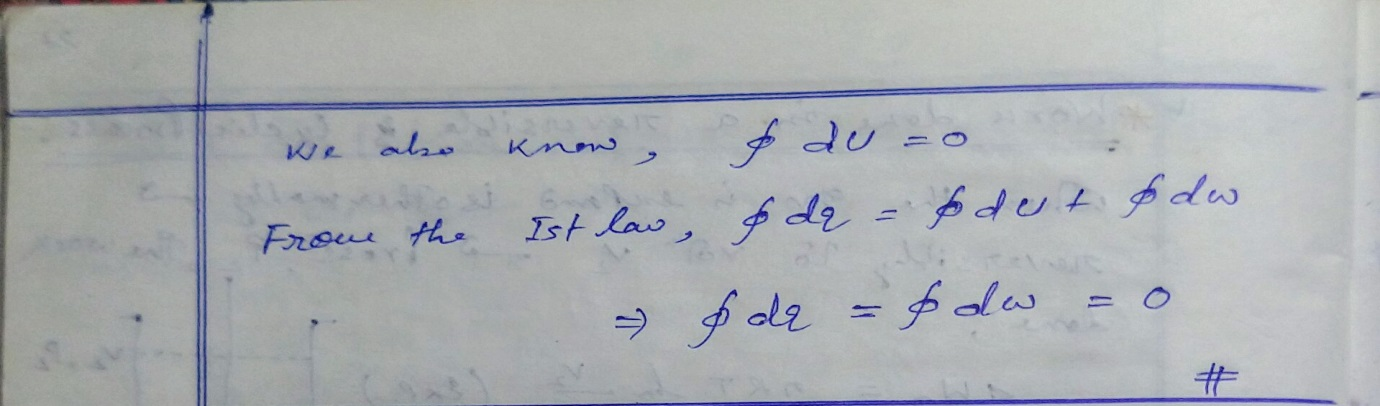 We also know, ∮ dU = 0
From the Ist law, ∮ dq = ∮ dU + ∮ dw
⇒ ∮ dq = ∮ dw = 0
#